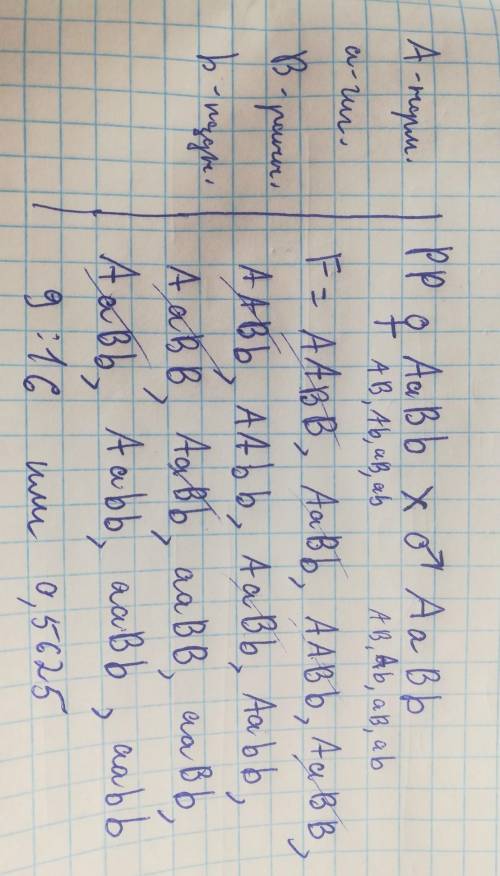 А - норм.
а - гиг.
B -
b -
PP ♀ AaBb X ♂ AaBb
AB, Ab, aB, ab
AB, Ab, aB, ab
F = AABB, AaBb, AABb, AaBB,
AABb, AAbb, AaBb, Aabb,
AaBB, AaBb, aaBB, aaBb,
AaBb, Aabb, aaBb, aabb
9 : 16 или 0,5625